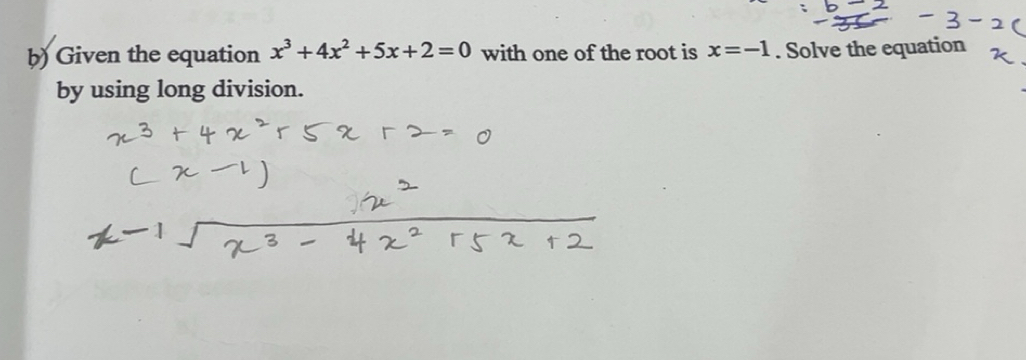 : b - 2
- 3 - 2(
b) Given the equation x³+4x²+5x+2=0 with one of the root is x=−1. Solve the equation
x
by using long division.
x³ + 4x² + 5x + 2 = 0
(x − 1)
x²
x−1 √ x³ − 4x² + 5x + 2